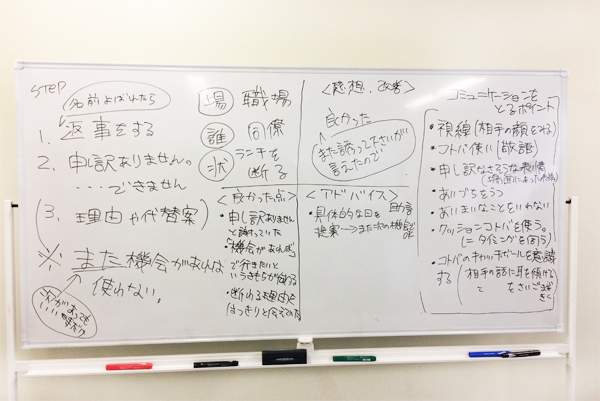 STEP
名前よばれたら
1. 返事をする
2. 申し訳ありません。
・・・できません
(3. 理由や代替案)
※また機会があれば
使わない。
場 職場
誰 同僚
状 ランチを
断る
<良かった点>
・申し訳ありません
と謝っていた
・「機会があれば」
で行きたいと
いうきもちが伝わる
・断わる理由を
はっきりと伝えてた
<感想、改善>
良かった
また誘って下さいが
言えたので
<アドバイス>
・具体的な日を
提案→また次の機会
コミュニケーションを
とるポイント
・視線(相手の顔をみる)
・コトバ使い(敬語)
・申し訳なさそうな表情
・あいづちをうつ
・あいまいなことをいわない
・クッションコトバを使う。
(=タイミングを伺う)
・コトバのキャッチボールを意識
する
相手の話に耳を傾ける
さいごまで
きく